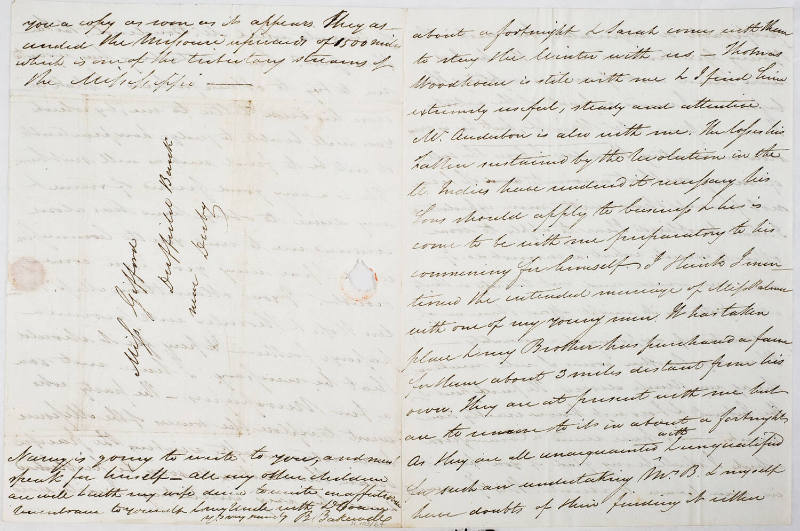 you a copy as soon as it appears. They as
cended the Missouri upwards of 1500 miles
which is one of the tributary streams of
the Mississippi —
Miss Gifford
Duffield Bank
near Derby
Nancy is going to write to you, and must
speak for himself — all my other children
are well both my wife desire to unite in affectionate
remembrance to yourself & my Uncle with Dr Loaring
B. Bakewell
about a fortnight & Sarah comes with them
to stay the Winter with us — Thomas
Woodhouse is still with me & I find him
extremely useful, steady and attentive
Mr. Audubon is also with me. The losses his
Father sustained by the Revolution in the
W. Indies have rendered it necessary his
Sons should apply to business & he is
come to be with me preparatory to his
commencing for himself I think I men
tioned the intended marriage of Miss Palmer
with one of my young men. It has taken
place & my Brother has purchased a farm
for them about 3 miles distant from his
own. They are at present with me but
are to remove to it in about a fortnight
As they are all unacquainted with & unqualified
for such an undertaking Mrs. B & myself
have doubts of their finding it either